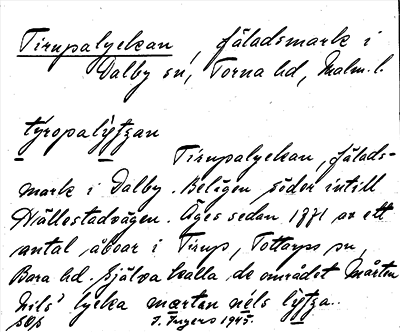 Tirupalyckan, fäladsmark i
Dalby sn, Torna hd, Malm. l.
týropalỳtʒan
Tirupalyckan, fälads-
mark i Dalby. Belägen söder intill
Hällestadvägen. Äges sedan 1871 av ett
antal åboar i Tirup, Tottarps sn,
Bara hd. Själva kalla de området Mårten
Nils' lycka mærten néls lỳtʒa.
I. Ingers 1945.